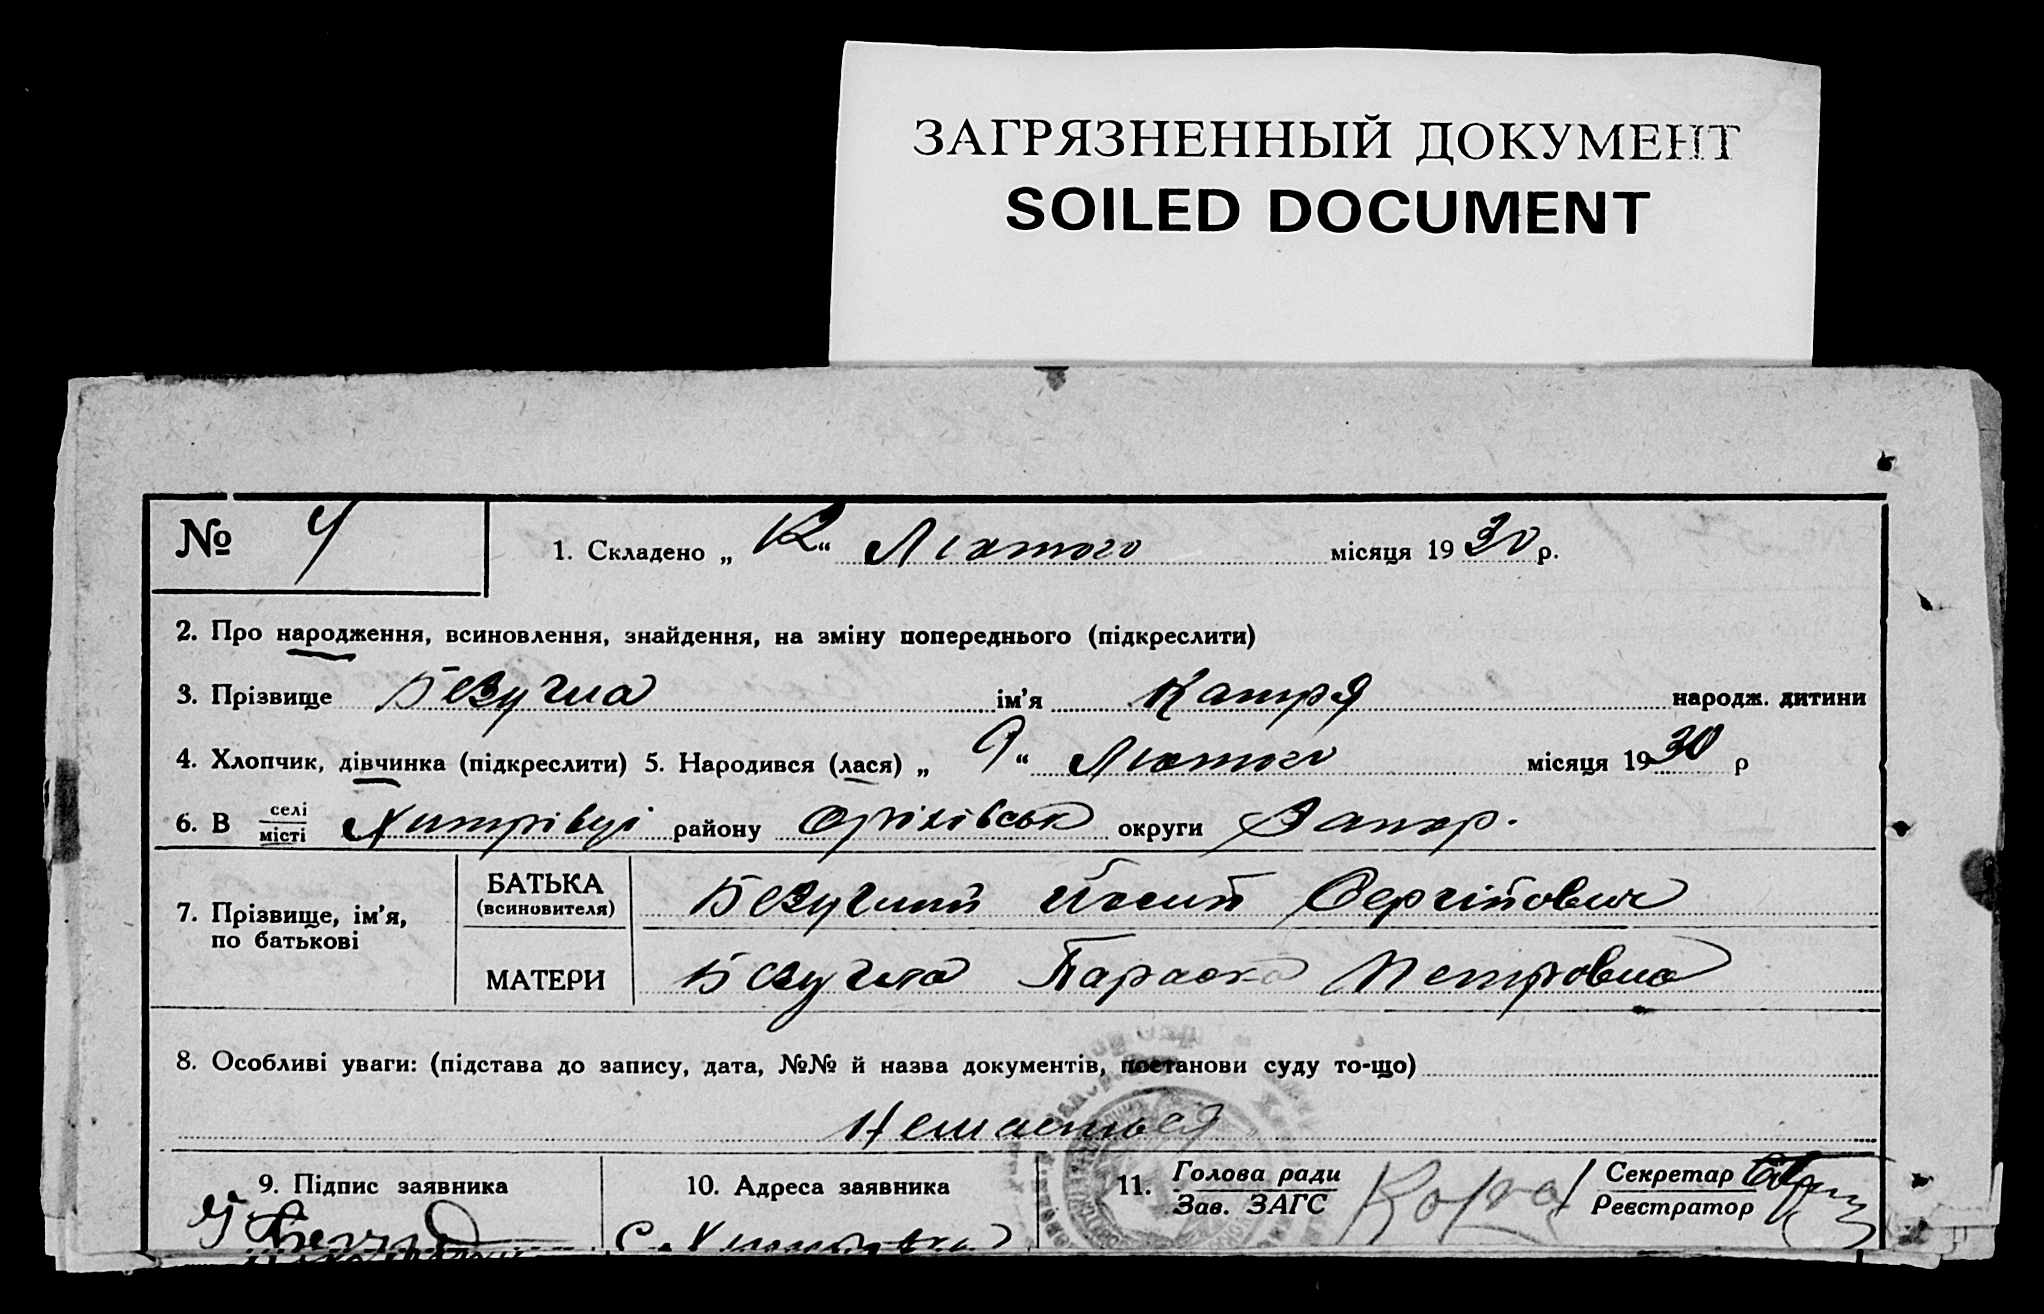 ЗАГРЯЗНЕННЫЙ ДОКУМЕНТ
SOILED DOCUMENT
№ 4
1. Складено „ 12 “ Лютого місяця 1930 р.
2. Про народження, всиновлення, знайдення, на зміну попереднього (підкреслити)
3. Прізвище Безугла ім’я Катря народж. дитини
4. Хлопчик, дівчинка (підкреслити) 5. Народився (лася) „ 9 “ Лютого місяця 1930 р
6. В селі
місті Хитрівці району Оріхівськ округи Запор.
7. Прізвище, ім’я,
по батькові
БАТЬКА
(всиновителя)
Безуглий Йосип Сергійович
МАТЕРИ
Безугла Параска Петровна
8. Особливі уваги: (підстава до запису, дата, №№ й назва документів, постанови суду то-що)
Немаеться
9. Підпис заявника
10. Адреса заявника
С.
11. Голова ради
Зав. ЗАГС
Секретар
Реєстратор